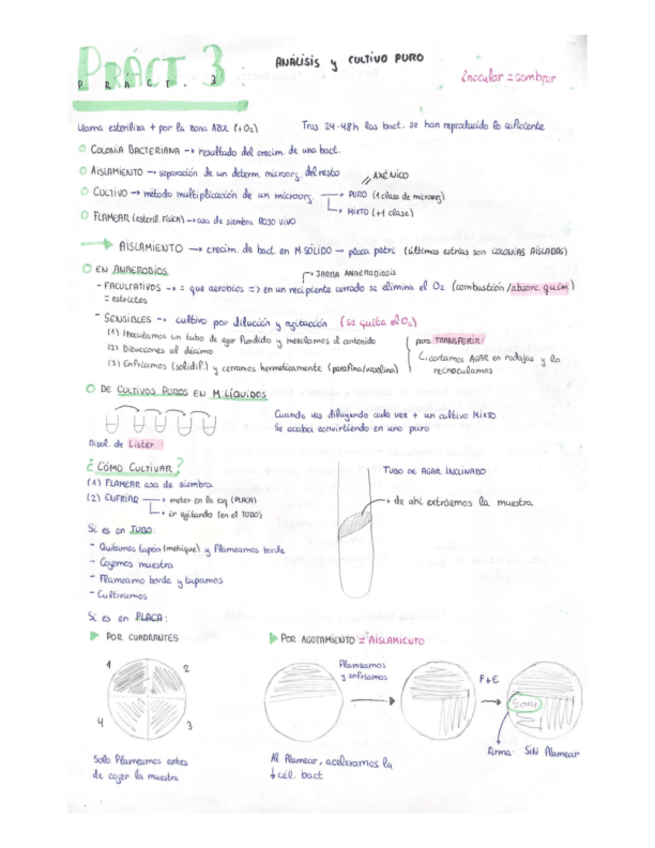 PRÁCT. 3:
P R Á C T . 3
ANÁLISIS y CULTIVO PURO
inocular = sembrar
Llama esteriliza + por la zona AZUL (+O2)
Tras 24-48h las bact. se han reproducido lo suficiente
COLONIA BACTERIANA → resultado del crecim. de una bact.
AISLAMIENTO → separación de un determ. microorg. del resto
AXÉNICO
CULTIVO → método multiplicación de un microorg.
PURO (1 clase de microorg)
MIXTO (+1 clase)
FLAMEAR (esteril. física) → asa de siembra ROJO VIVO
AISLAMIENTO → crecim. de bact. en M.SÓLIDO → placa petri (últimas estrías son COLONIAS AISLADAS)
EN ANAEROBIOS
JARRA ANAEROBIOSIS
- FACULTATIVOS → = que aerobios => en un recipiente cerrado se elimina el O2 (combustión/absorc. quím)
= estrictos
- SENSIBLES → cultivo por dilución y agitación (se quita el O2)
(1) Inoculamos un tubo de agar fundido y mezclamos el contenido
(2) Diluciones al décimo
(3) Enfriamos (solidif.) y cerramos herméticamente (parafina/vaselina)
para TRANSFERIR
cortamos AGAR en rodajas y lo
reinoculamos
DE CULTIVOS PUROS EN M.LÍQUIDOS
Cuando vas diluyendo cada vez + un cultivo MIXTO
Se acaba convirtiendo en uno puro
Disol. de Lister
¿CÓMO CULTIVAR?
(1) FLAMEAR asa de siembra
(2) ENFRIAR → meter en la esq (PLACA)
→ ir agitando (en el TUBO)
TUBO DE AGAR INCLINADO
de ahí extraemos la muestra
Si es en TUBO:
- Quitamos tapón (meñique) y flameamos borde
- Cogemos muestra
- Flameamo borde y tapamos
- Cultivamos
Si es en PLACA:
POR CUADRANTES
POR AGOTAMIENTO = AISLAMIENTO
1
2
3
4
Flameamos
y enfriamos
F+E
Solo flameamos antes
de coger la muestra
Al flamear, aceleramos la
↓ cél. bact
SIN flamear